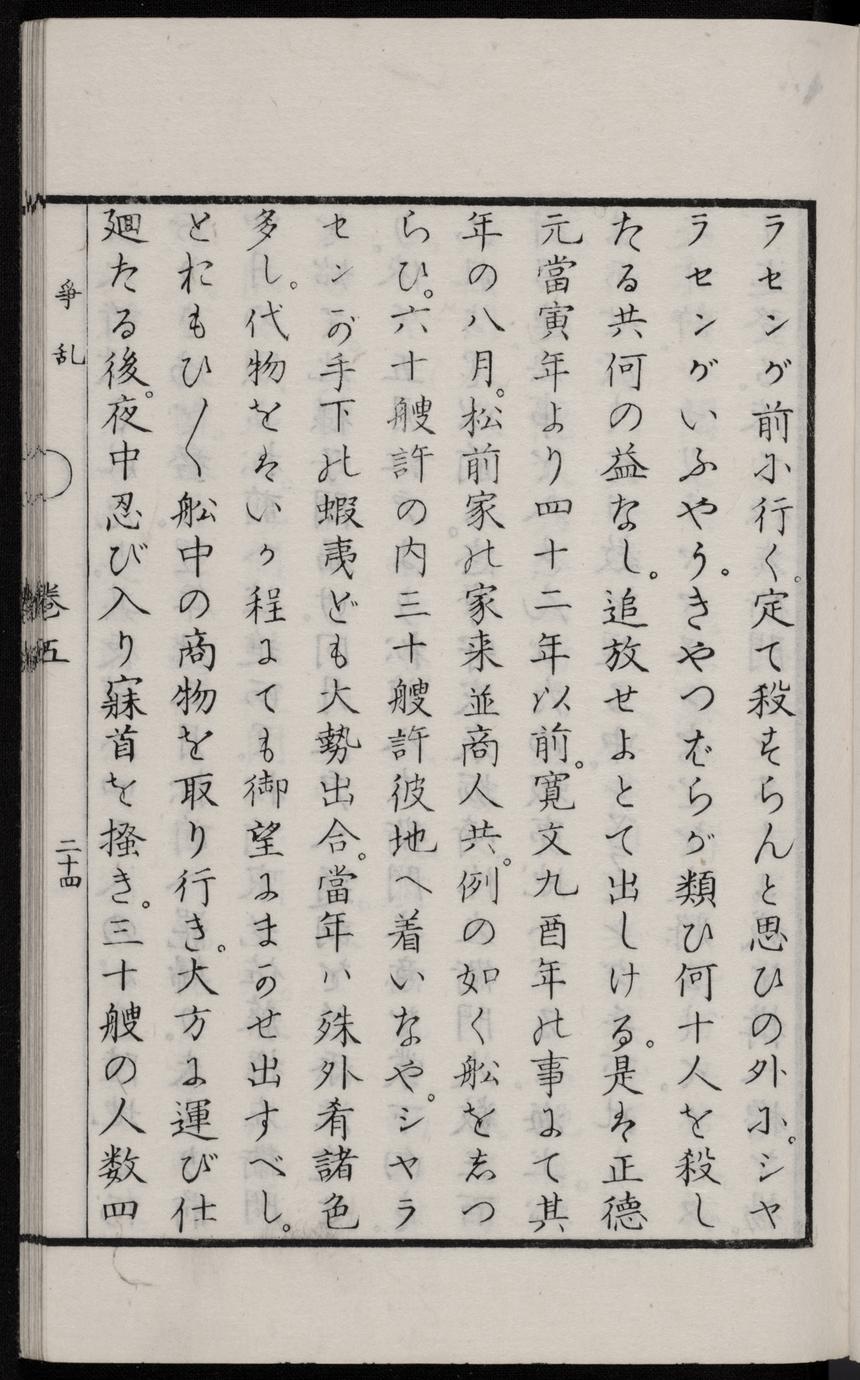 ラセンが前に行く。定て殺すらんと思ひの外に。シヤ
ラセンがいふやう。きやつむらが類ひ何十人を殺し
たる共何の益なし。追放せよとて出しける。是は正德
元當寅年より四十二年以前。寛文九酉年の事にて其
年の八月。松前家の家来並商人共。例の如く舩をしつ
らひ。六十艘許の内三十艘許彼地へ着いなや。シヤラ
センが手下の蝦夷ども大勢出合。當年ハ殊外肴諸色
多し。代物をはいか程にても御望にまかせ出すべし。
とおもひ〳〵舩中の商物を取り行き。大方に運び仕
廻たる後。夜中忍び入り寐首を掻き。三十艘の人数四
爭乱
卷五
二十四